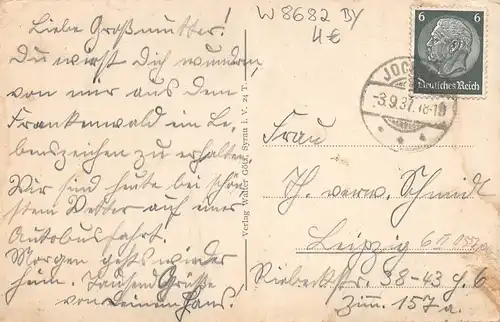 W 8682 BY
4€
Liebe Großmutter!
Du wirst Dich wundern,
von mir aus dem
Frankenwald ein Le-
benszeichen zu erhalten.
Wir sind heute bei schön-
stem Wetter auf einer
Autobusfahrt.
Morgen gehts wieder
heim. Tausend Grüße
von Deinem Hans.
Verlag Walter Götz, Syrau i. V. 24 T.
6 6
Deutsches Reich
JOC
-3.9.37.18-19
Frau
Th. verw. Schmidt
Leipzig
Riebeckstr. 38-43
Zim. 157a.